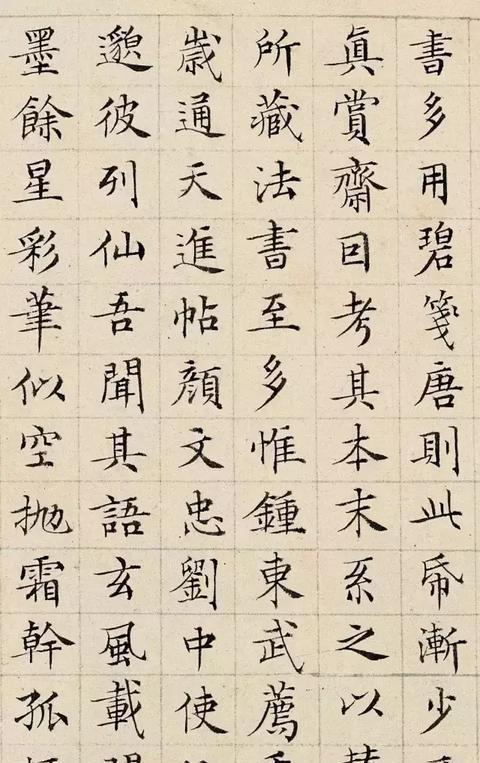 書多用碧箋唐則此帋漸少
眞賞齋囙考其本末系之以
所藏法書至多惟鍾東武薦
歲通天進帖顔文忠劉中使
邈彼列仙吾聞其語玄風載
墨餘星彩筆似空抛霜幹孤